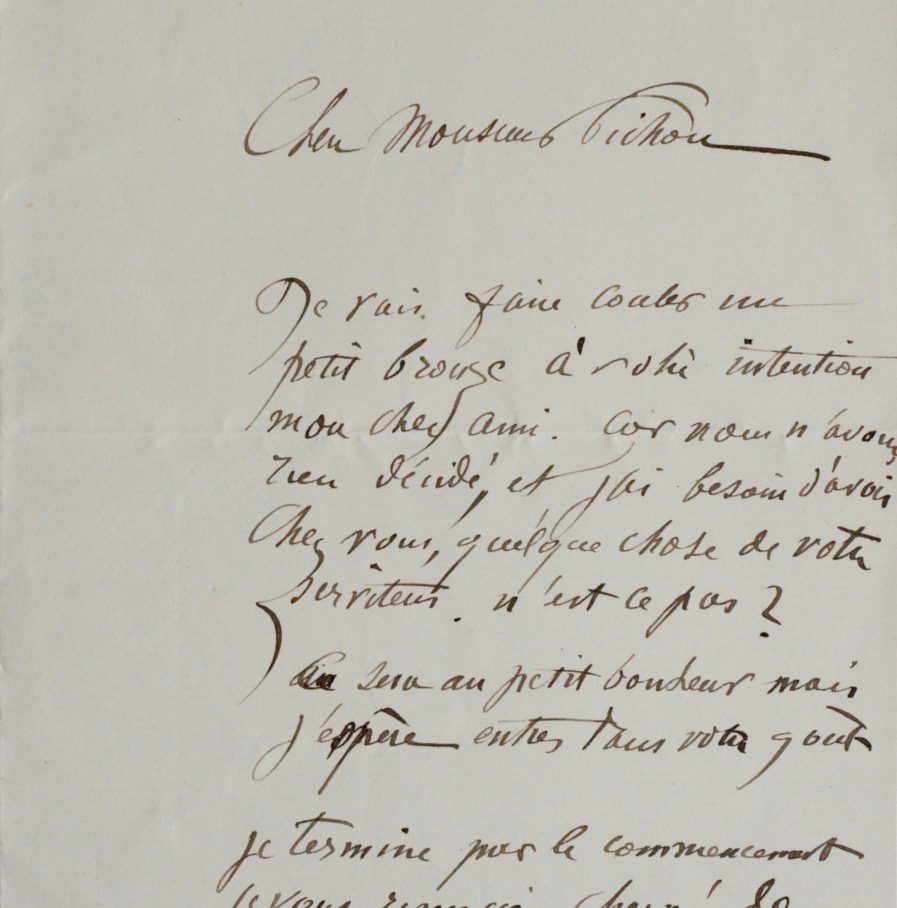 Cher Monsieur Pichon
Je vais faire couler un
petit bronze à votre intention
mon cher ami. Car nous n'avons
rien décidé, et j'ai besoin d'avoir
chez vous, quelque chose de votre
serviteur. n'est ce pas ?
Ce sera au petit bonheur mais
j'espère entrer dans votre goût
je termine par le commencement
je vous